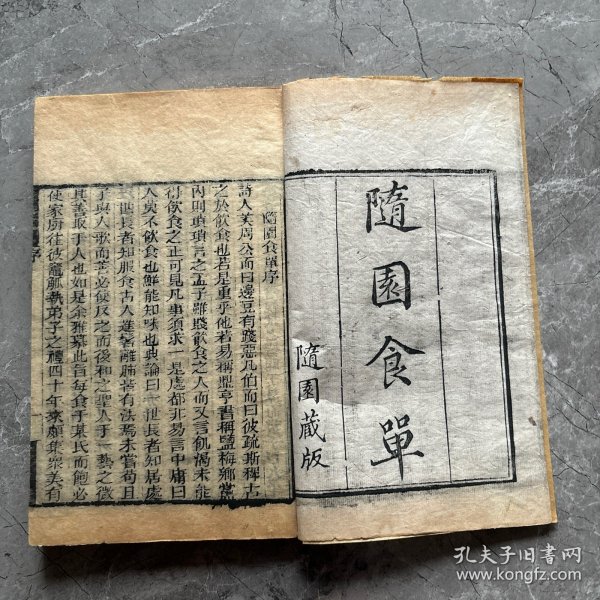 隨園食單
隨園藏版
隨園食單序
詩人美周公而曰籩豆有踐惡凡伯而曰彼疏斯稗古
之於飲食也若是重乎他若易稱鼎亨書稱鹽梅鄉黨
內則瑣瑣言之孟子雖賤飲食之人而又言飢渴未能
得飲食之正可見凡事須求一是處都非易言中庸曰
人莫不飲食也鮮能知味也典論曰一世長者知居處
三世長者知服食古人進鬐離肺皆有法焉未嘗苟且
子與人歌而善必使反之而後和之聖人于一藝之微
其善取于人也如是余雅慕此旨每食于某氏而飽必
使家廚往彼竈觚執弟子之禮四十年來頗集衆美有
序
孔夫子旧书网
www.kongfz.com